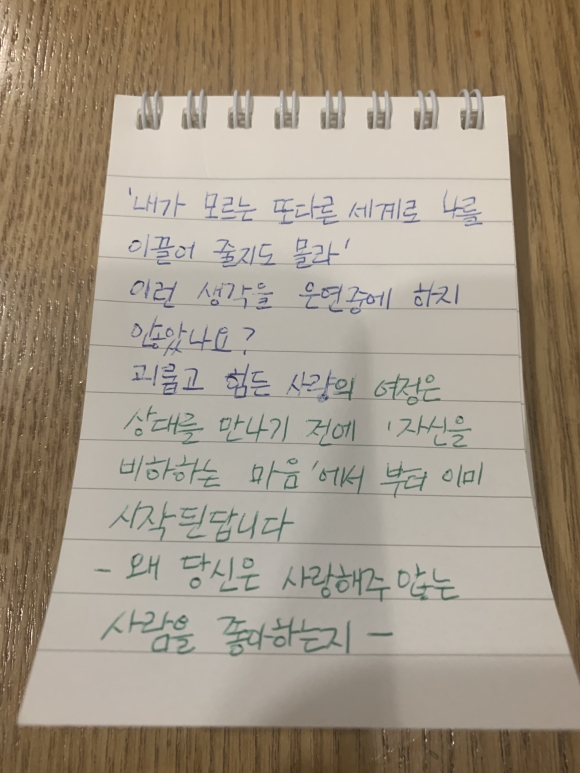 '내가 모르는 또다른 세계로 나를
이끌어 줄지도 몰라'
이런 생각을 은연중에 하지
않았나요?
괴롭고 힘든 사랑의 여정은
상대를 만나기 전에 '자신을
비하하는 마음'에서 부터 이미
시작된답니다
- 왜 당신은 사랑해주 않는
사람을 좋아하는지 -